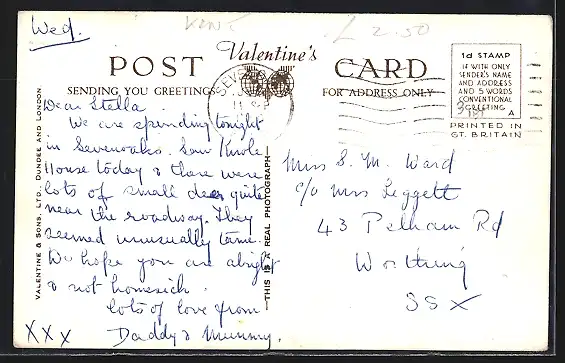 Wed.
KENT
£2.50
Valentine's
POST CARD
SENDING YOU GREETINGS
FOR ADDRESS ONLY
1d STAMP
IF WITH ONLY
SENDER'S NAME
AND ADDRESS
AND 5 WORDS
CONVENTIONAL
GREETING
A
PRINTED IN
GT. BRITAIN
SEVE
VALENTINE & SONS, LTD., DUNDEE AND LONDON
THIS IS A REAL PHOTOGRAPH
Dear Stella
We are spending tonight
in Sevenoaks. Saw Knole
House today & there were
lots of small deer quite
near the roadway. They
seemed unusually tame.
We hope you are alright
& not homesick.
Lots of love from
Daddy & Mummy.
XXX
Miss S. M. Ward
c/o Mrs Leggett
43 Pelham Rd
Worthing
SSX